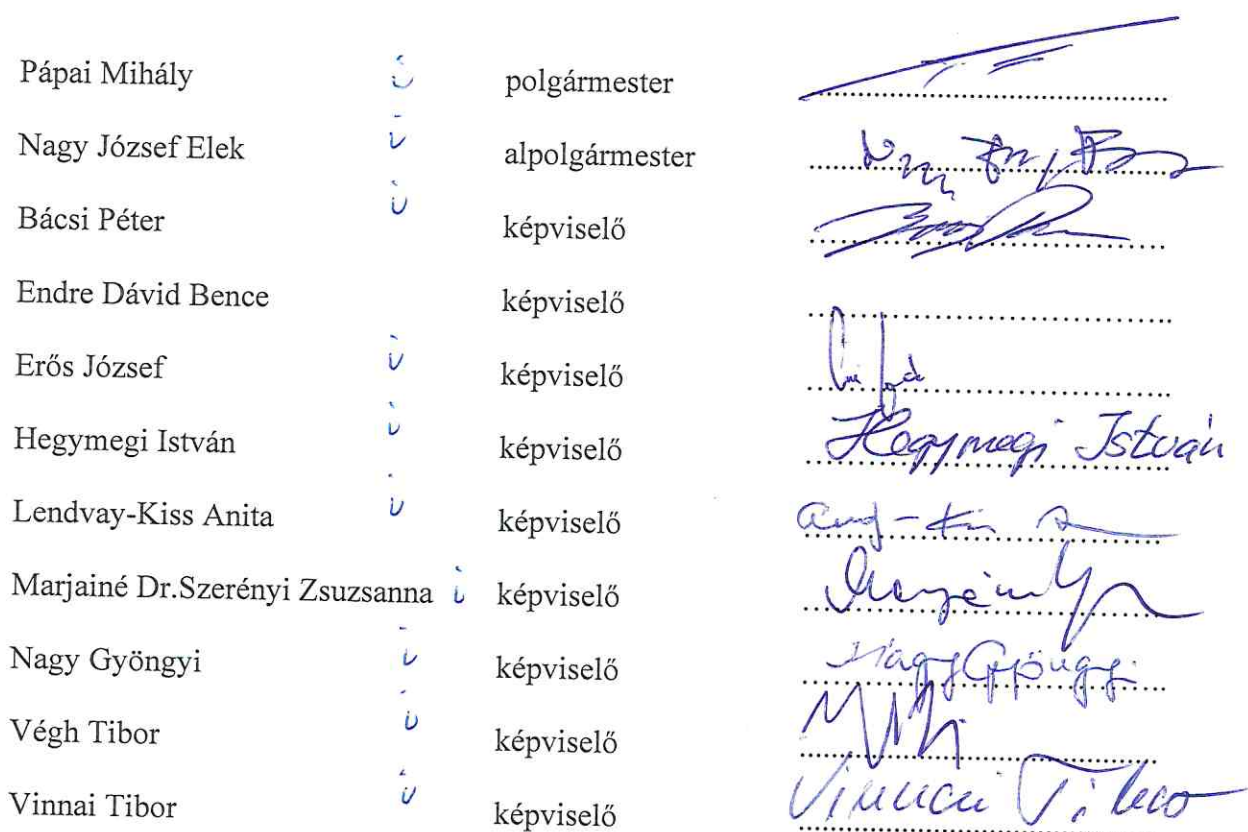 Pápai Mihály i polgármester
Nagy József Elek i alpolgármester
Bácsi Péter i képviselő
Endre Dávid Bence képviselő
Erős József i képviselő
Hegymegi István i képviselő Hegymegi István
Lendvay-Kiss Anita i képviselő
Marjainé Dr.Szerényi Zsuzsanna i képviselő
Nagy Gyöngyi i képviselő Nagy Gyöngyi
Végh Tibor i képviselő
Vinnai Tibor i képviselő Vinnai Tibor